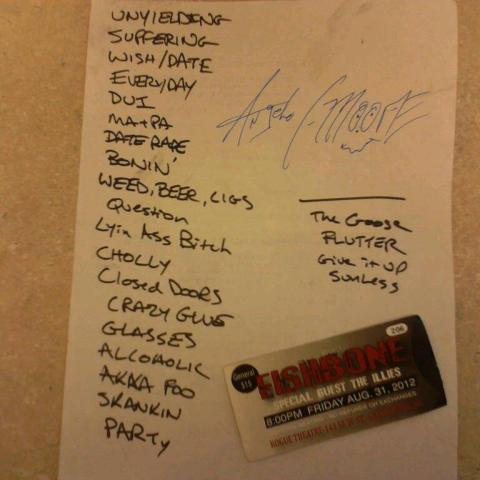 UNYIELDING
SUFFERING
WISH/DATE
EVERYDAY
DUI
MA+PA
DATE RAPE
BONIN'
WEED, BEER, CIGS
Question
Lyin Ass Bitch
CHOLLY
Closed DOORS
CRAZY GLUE
GLASSES
ALCOHOLIC
AKKA FOO
SKANKIN
PARTY
Angelo C. MOORE
The Goose
FLUTTER
Give it UP
SUNLESS
206
General
$15
FISHBONE
SPECIAL GUEST THE ILLIES
8:00PM FRIDAY AUG. 31, 2012
ROGUE THEATRE